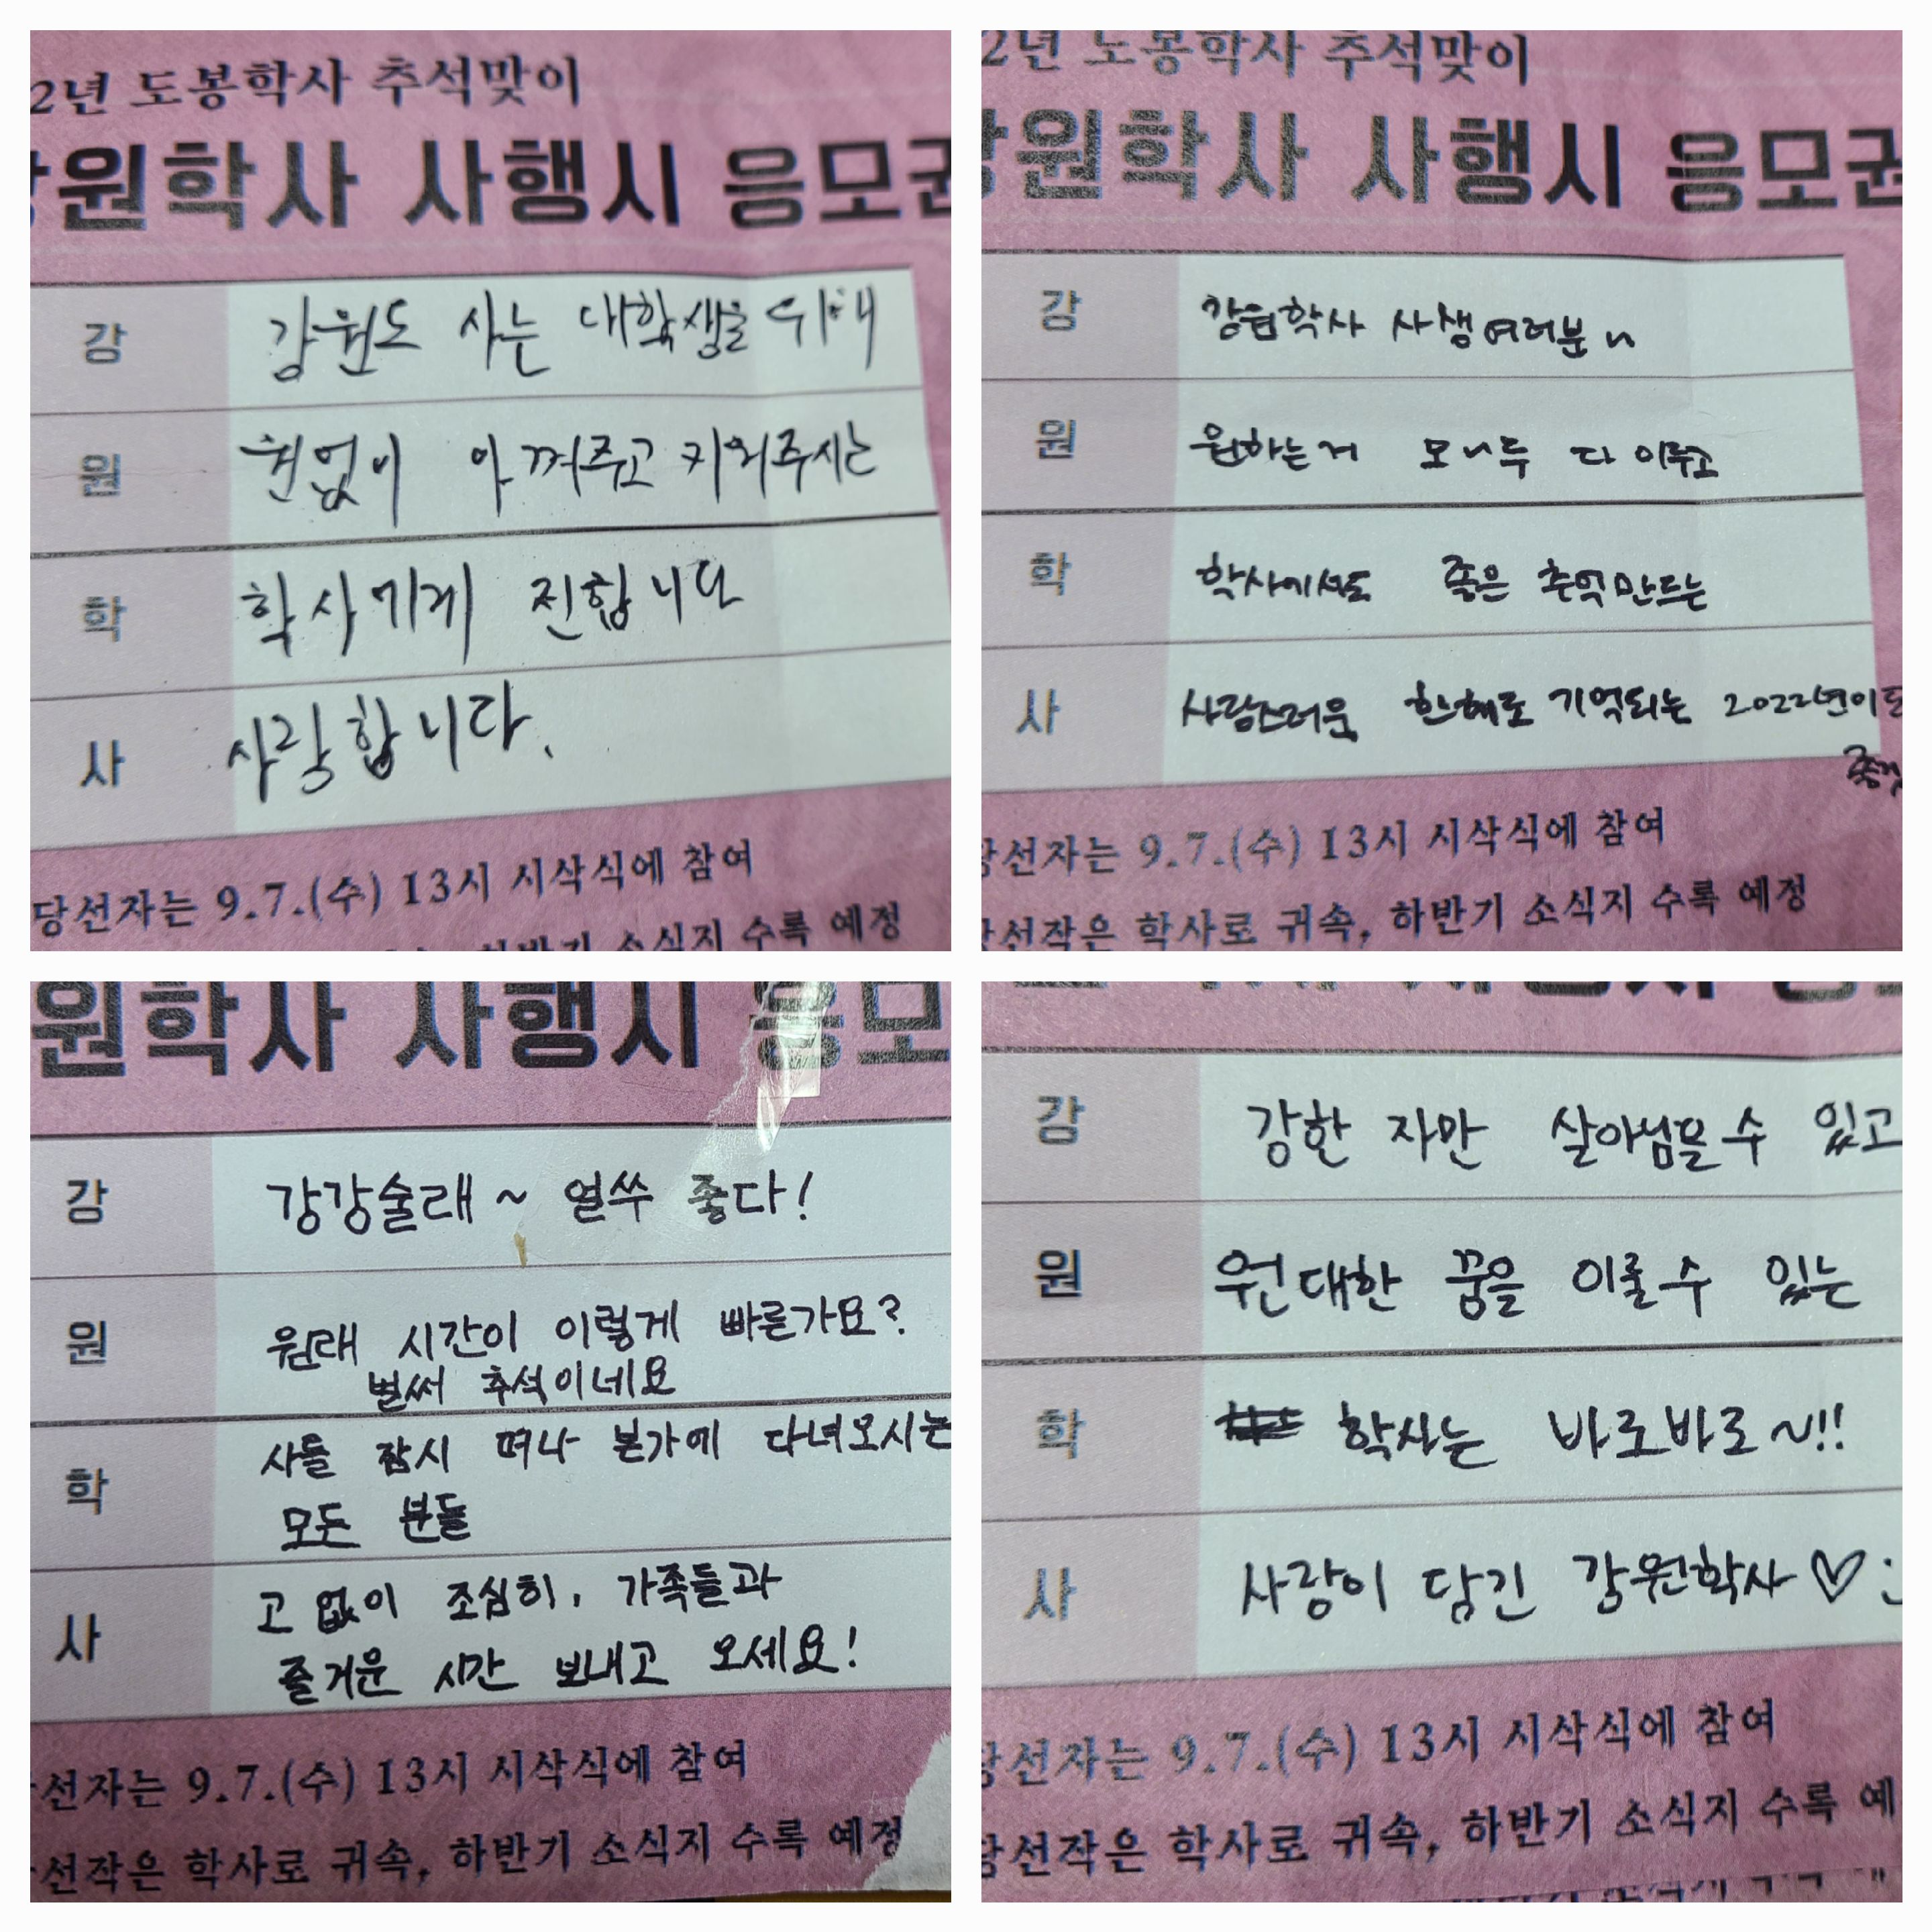 2년 도봉학사 추석맞이
강원학사 사행시 응모권
강 강원도 사는 대학생을 위해
원 원없이 아껴주고 키워주시는
학 학사기게 진합니다
사 사랑합니다.
당선자는 9.7.(수) 13시 시삭식에 참여
하반기 소식지 수록 예정
2년 도봉학사 추석맞이
강원학사 사행시 응모권
강 강원학사 사생여러분~
원 원하는거 모~두 다 이루고
학 학사에서도 좋은 추억만드는
사 사랑스러운 한해로 기억되는 2022년이
당선자는 9.7.(수) 13시 시삭식에 참여
당선작은 학사로 귀속, 하반기 소식지 수록 예정
원학사 사행시 응모
강 강강술래~ 얼쑤 좋다!
원 원래 시간이 이렇게 빠른가요?
벌써 추석이네요
학 사를 잠시 떠나 본가에 다녀오시는
모든 분들
사 고 없이 조심히, 가족들과
즐거운 시간 보내고 오세요!
선자는 9.7.(수) 13시 시삭식에 참여
선작은 학사로 귀속, 하반기 소식지 수록 예정
강 강한 자만 살아남을 수 있고
원 원대한 꿈을 이룰 수 있는
학 학사는 바로바로~!!
사 사랑이 담긴 강원학사♡:
당선자는 9.7.(수) 13시 시삭식에 참여
당선작은 학사로 귀속, 하반기 소식지 수록 예